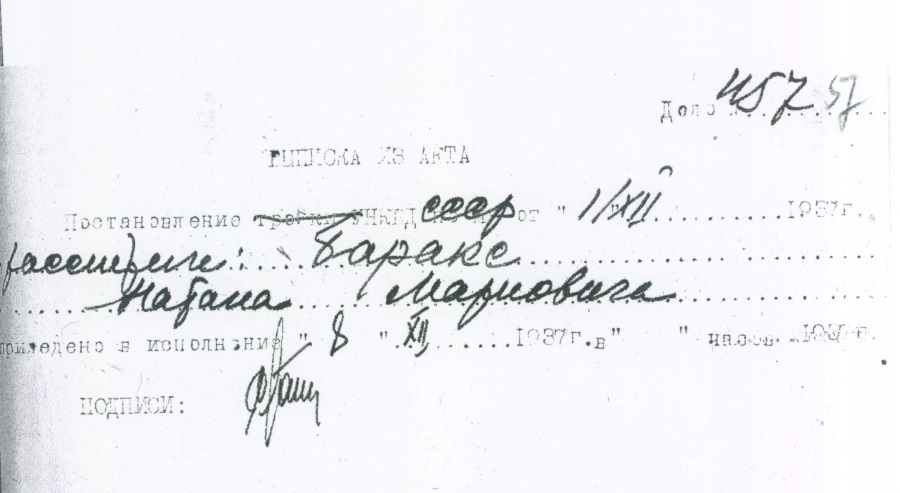 Дело 45757
ВЫПИСКА ИЗ АКТА
Постановление тройки УНКВД СССР от " 1/XII 1937г.
Баракс
Натана Марковича
приведено в исполнение " 8 " XII, 1937г. в " " часов
ПОДПИСИ: